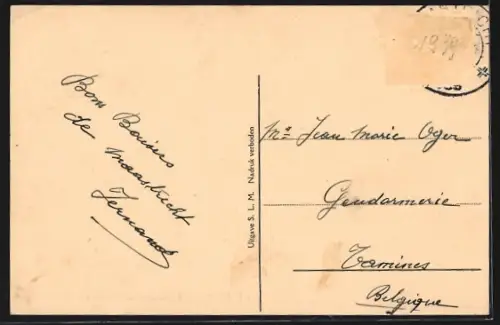 Bons Baisers
de Maastricht
Fernand
Uitgave S. L. M. Nadruk verboden
Mr Jean Marie Oger
Gendarmerie
Tamines
Belgique